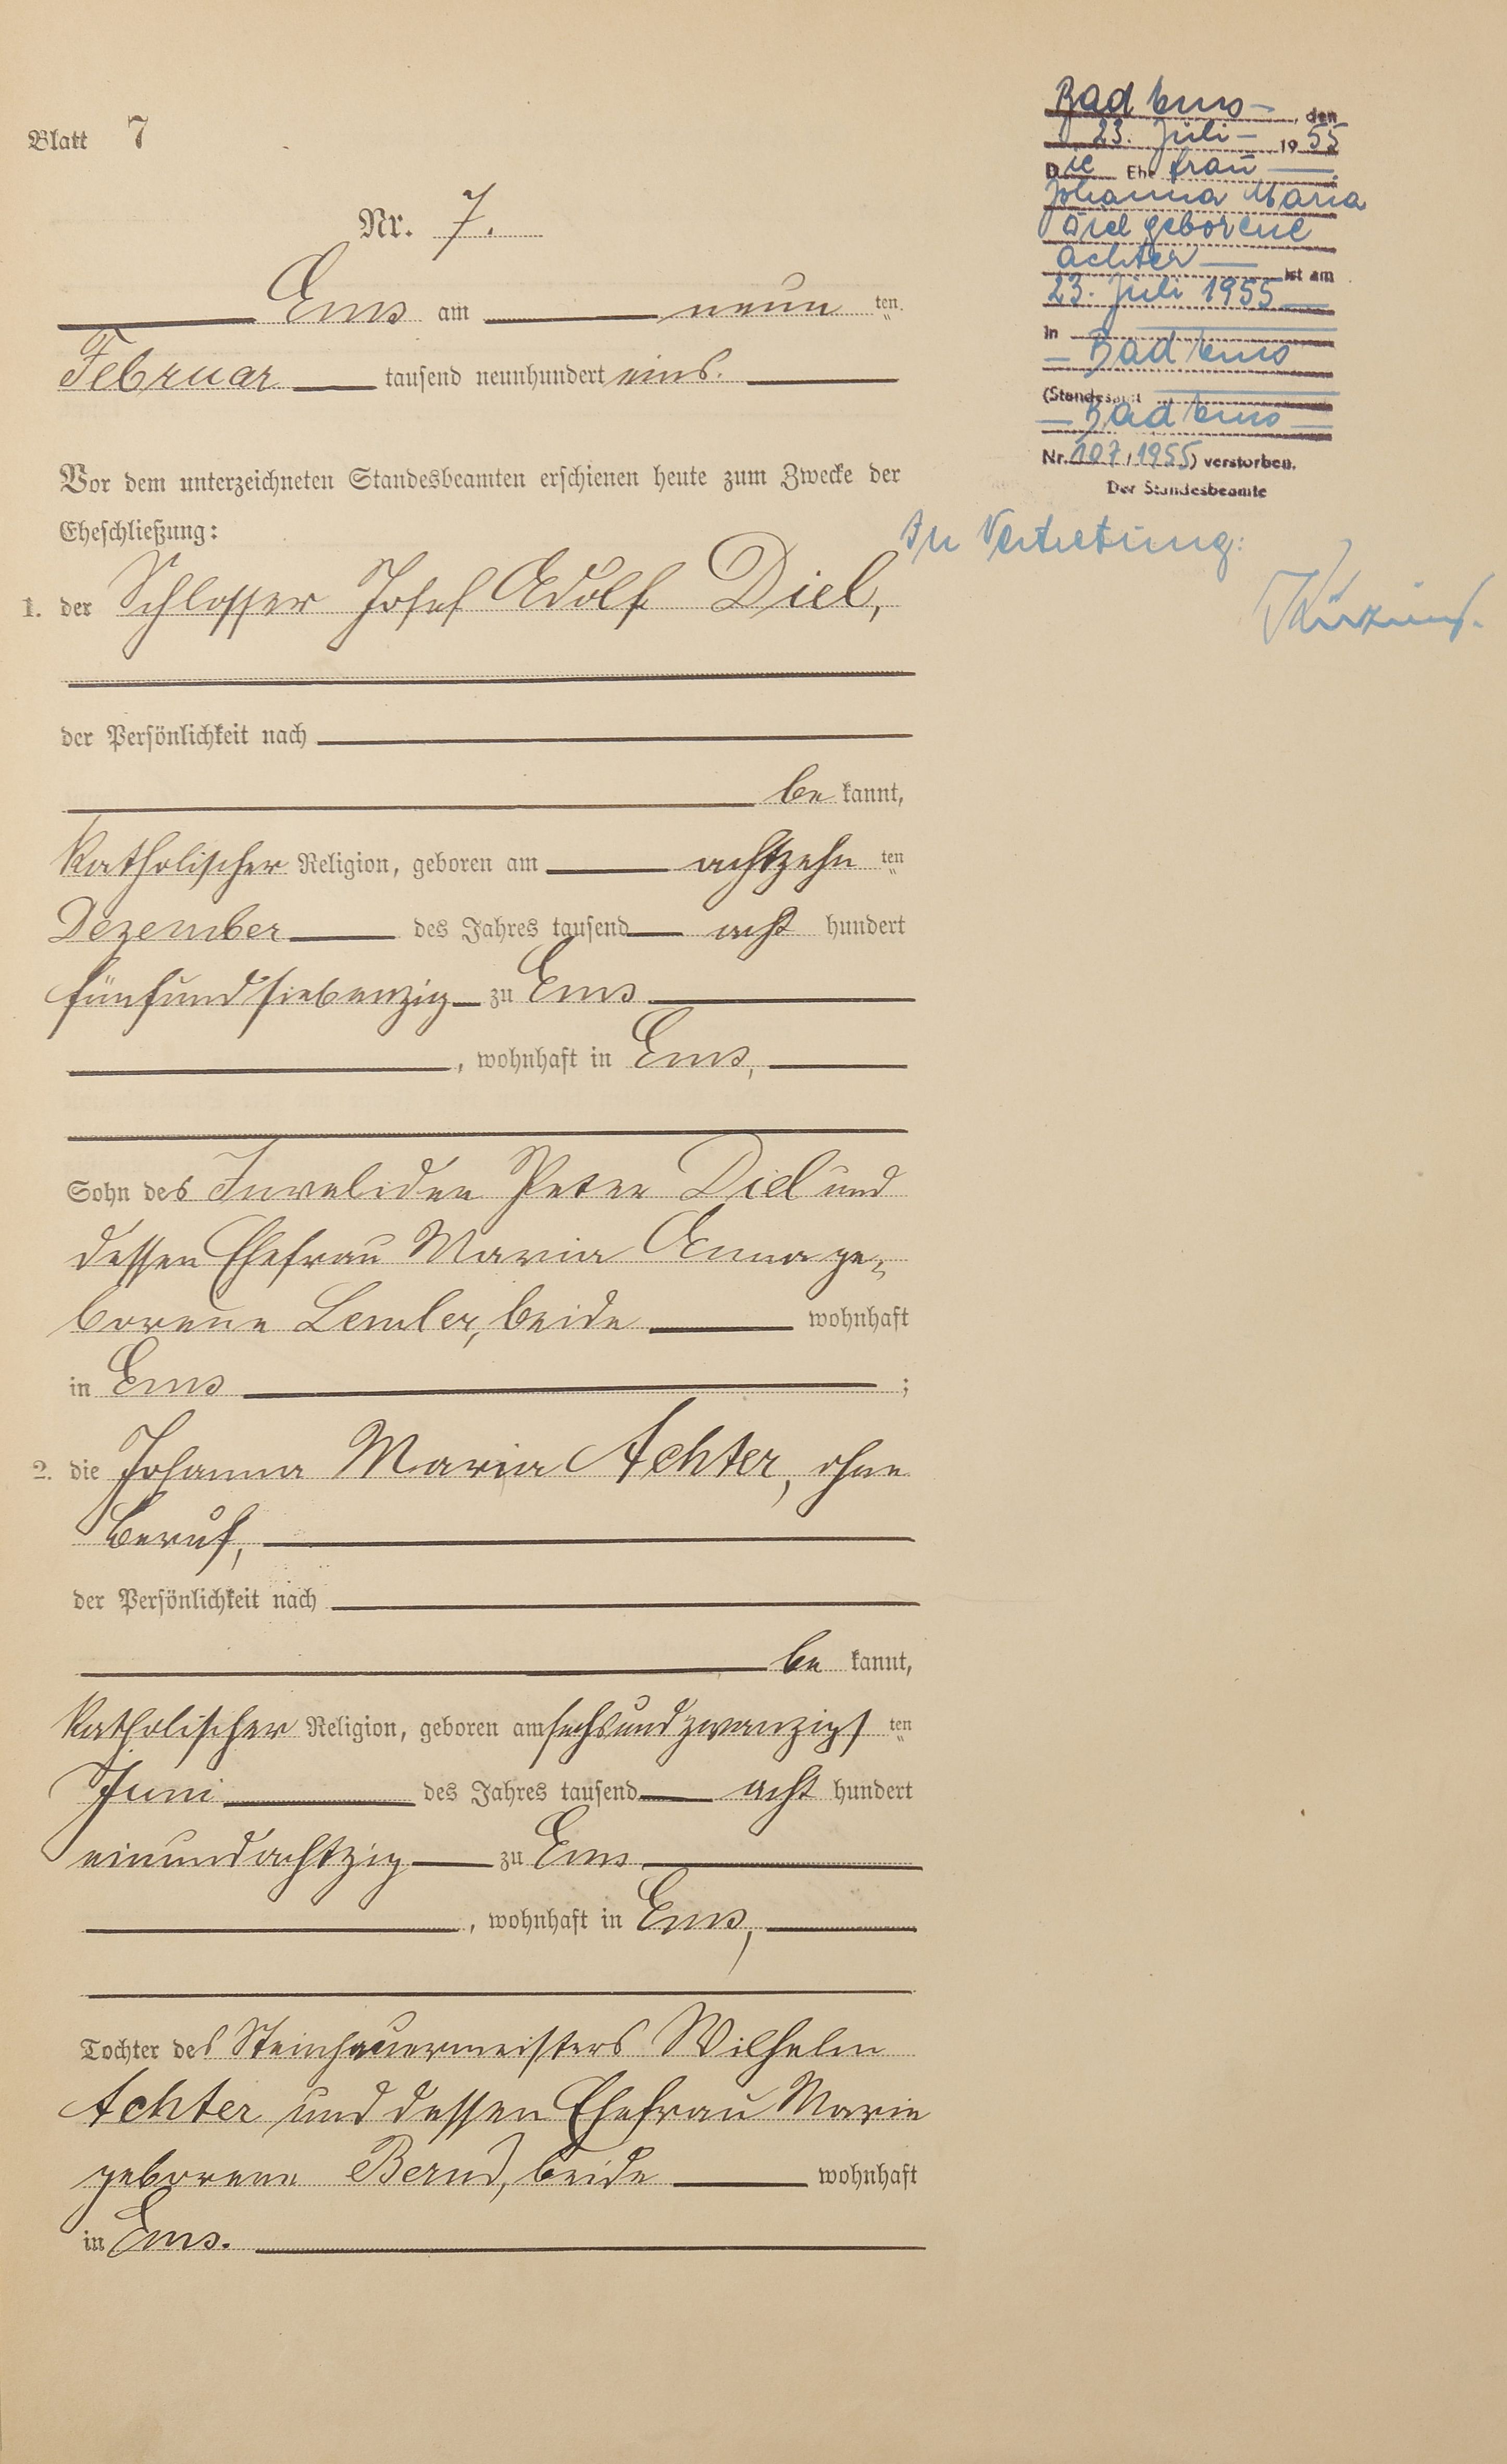 Blatt 7
Nr. 7.
Ems am neun ten
Februar tausend neunhundert eins.
Vor dem unterzeichneten Standesbeamten erschienen heute zum Zwecke der
Eheschließung:
1. der Schlosser Josef Adolf Diel,
der Persönlichkeit nach
be kannt,
katholischer Religion, geboren am achtzehn ten
Dezember des Jahres tausend acht hundert
fünfundsiebenzig zu Ems
, wohnhaft in Ems,
Sohn des Invaliden Peter Diel und
dessen Ehefrau Maria Anna ge-
borene Lemler, beide wohnhaft
in Ems ;
2. die Johanna Maria Achter, ohne
Beruf,
der Persönlichkeit nach
be kannt,
katholischer Religion, geboren am sechsundzwanzigs ten
Juni des Jahres tausend acht hundert
einundachtzig zu Ems
, wohnhaft in Ems,
Tochter des Steinhauermeisters Wilhelm
Achter und dessen Ehefrau Marie
geborene Bernd, beide wohnhaft
in Ems.
Bad Ems, den
23. Juli 1955
Die Ehefrau
Johanna Maria
Diel geborene
Achter ist am
23. Juli 1955
in
Bad Ems
(Standesamt
Bad Ems
Nr. 107/1955) verstorben.
Der Standesbeamte
In Vertretung: